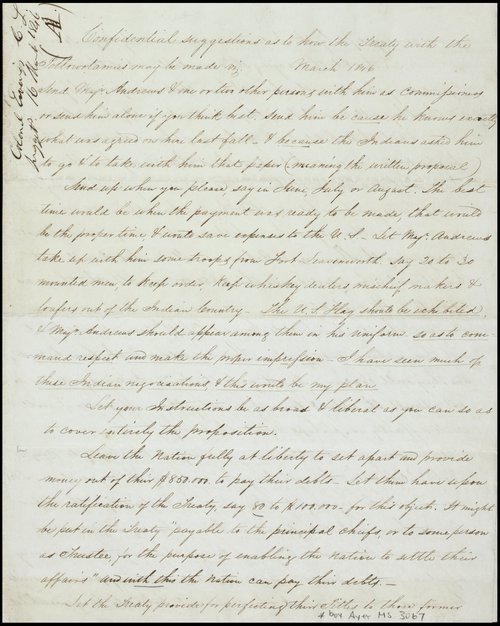 Colonel Ewing's C. L.
Suggests 16 March 1846
Confidential suggestions as to how the Treaty with the
Pottowotamies may be made viz March 1846
Send Majr Andrews & one or two other persons with him as commissioners
or send him alone if you think best. Send him be cause he knows exactly
what was agreed on here last fall - & because the Indians asked him
to go & to take with him that paper (meaning the written proposal)
Send up when you please say in June, July or August. The best
time would be when the payment was ready to be made, that would
be the proper time & would save expenses to the U. S - Let Majr. Andrews
take up with him some troops from Fort Leavenworth say 20 to 30
mounted men to keep order, keep whiskey dealers, mischief makers &
loafers out of the Indian Country - The U. S. Flag should be exhibited,
& Majr Andrews should appear among them in his Uniform so as to com-
mand respect and make the proper impression - I have seen much of
these Indian negociations & this would be my plan
Let your Instructions be as broad & liberal as you can so as
to cover entirely the proposition.
Leave the Nation fully at liberty to set apart and provide
money out of their $850.000 to pay their debts - Let them have upon
the ratification of the Treaty, say 80 to $100.000 - for this object. It might
be put in the Treaty "payable to the principal chiefs, or to some person
as Trustee, for the purpose of enabling the Nation to settle their
affairs" and with this the Nation can pay their debts. -
Let the Treaty provide for perfecting their Titles to those former
* box Ayer MS 3067